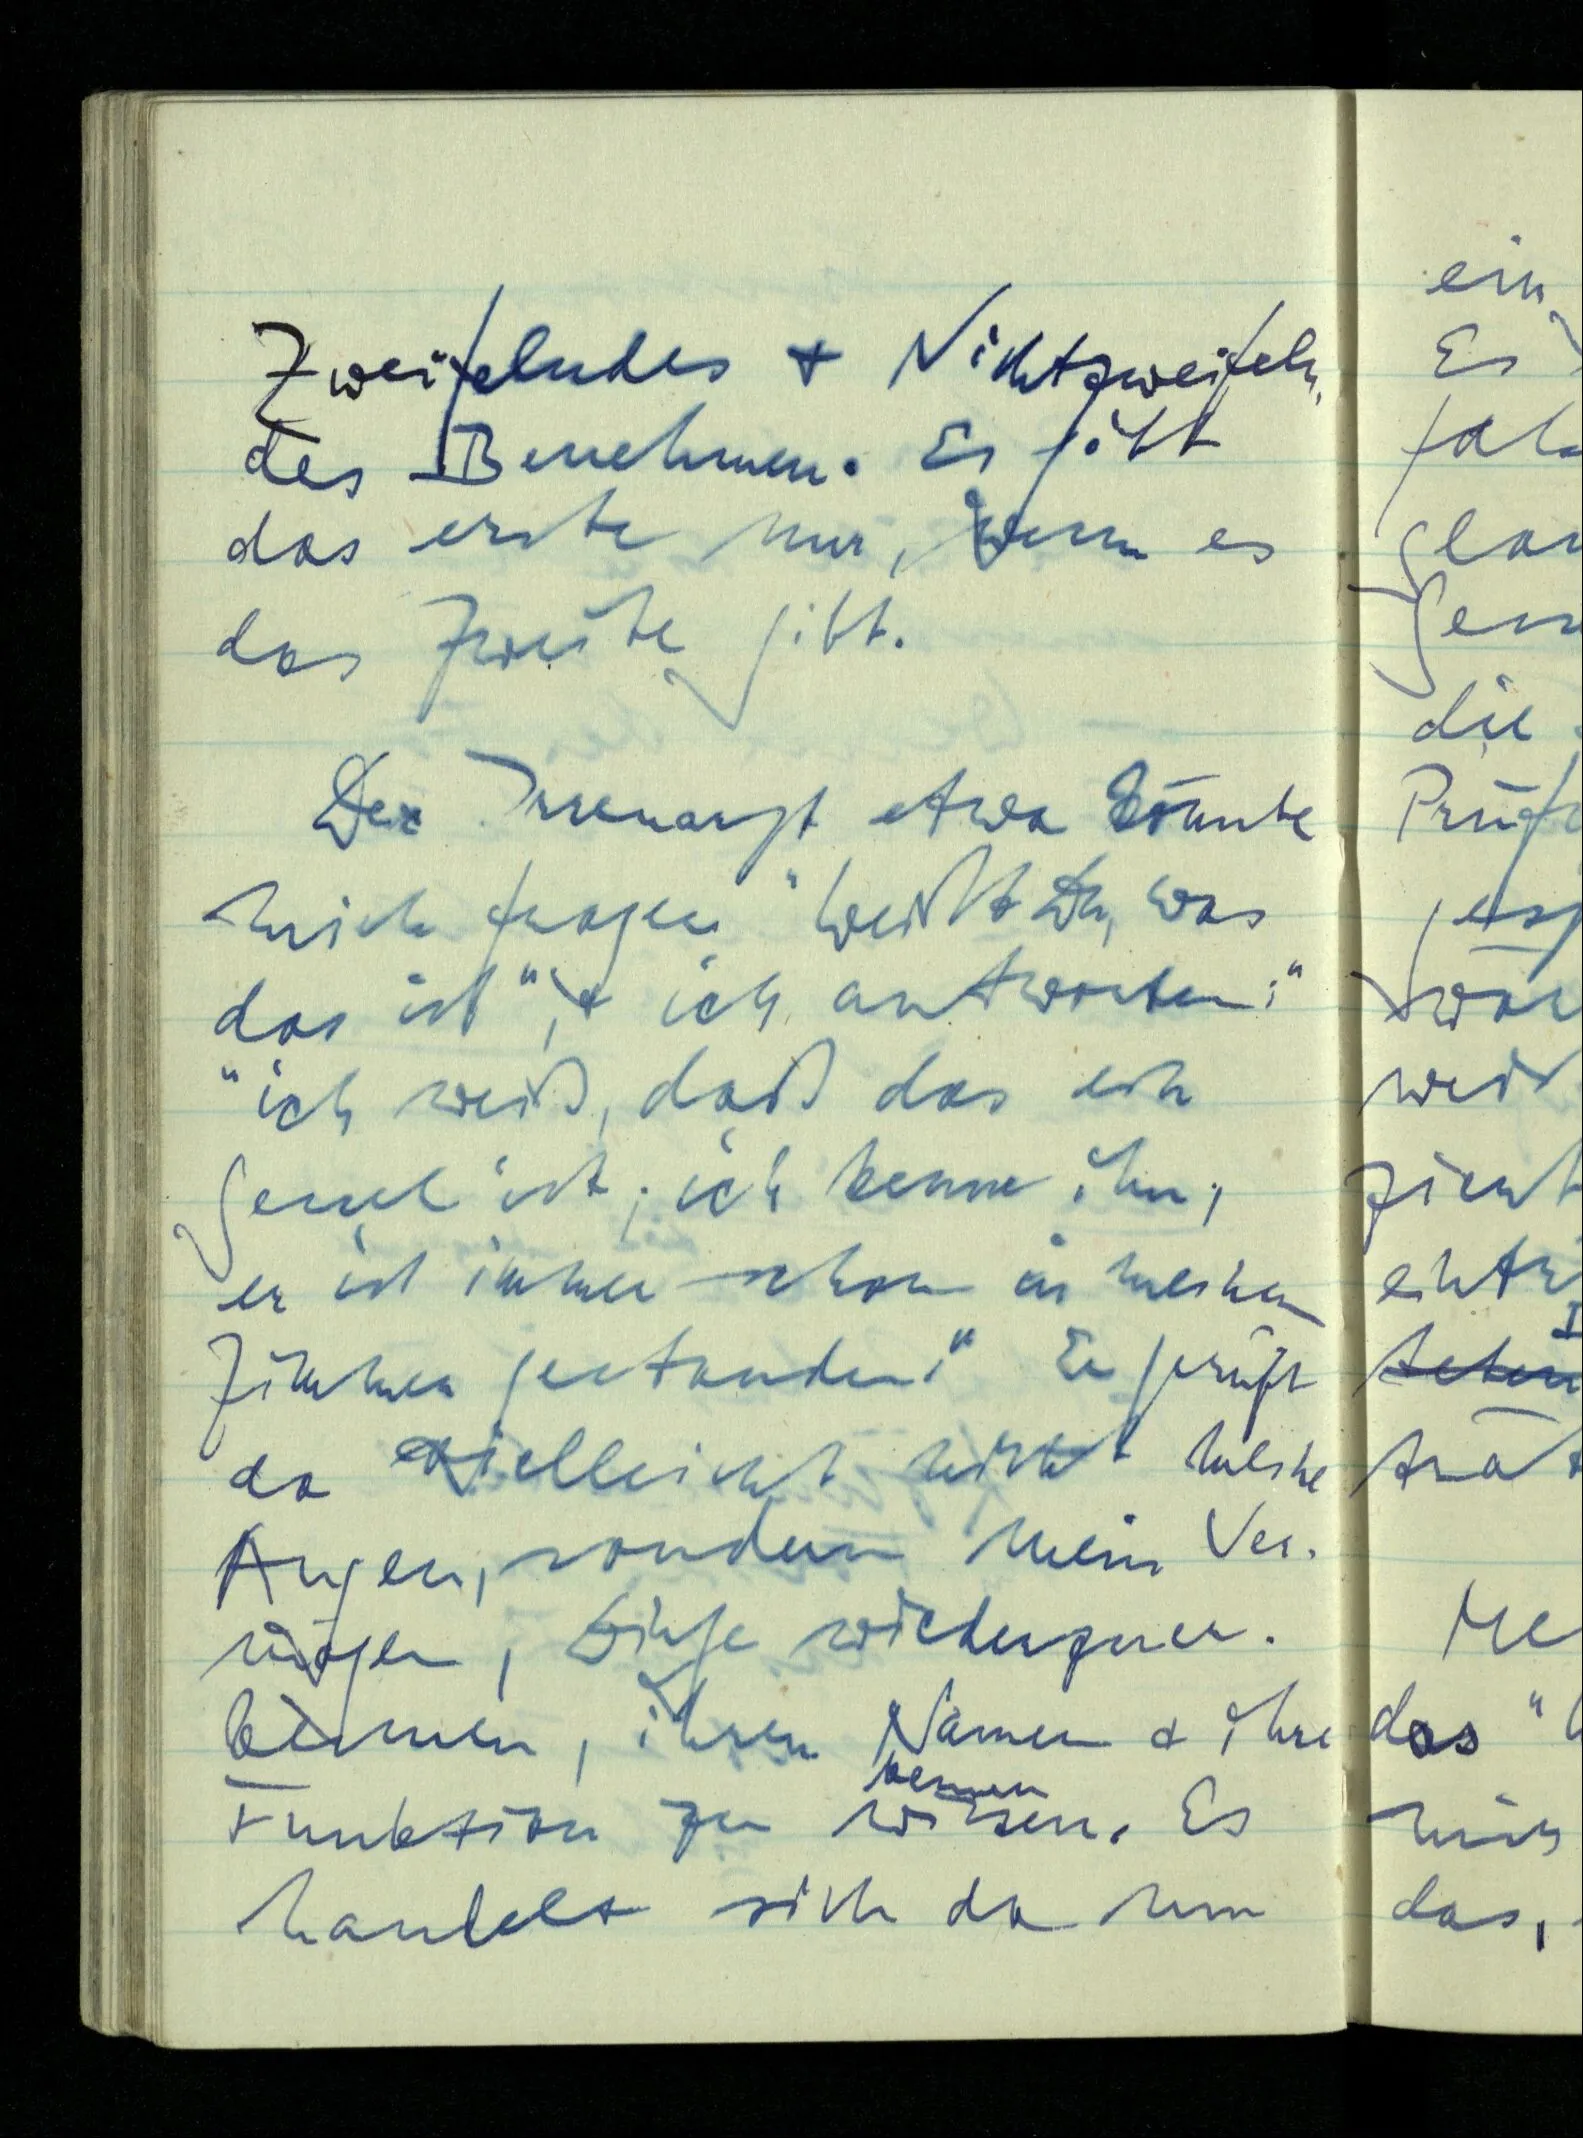 Zweifelndes + Nichtzweifeln-
des Benehmen. Es gibt
das erste nur, wenn es
das zweite gibt.
Der Irrenarzt etwa könnte
mich fragen "Weißt Du, was
das ist", & ich antworten: "
"ich weiß, daß das ein
Sessel ist; ich kenne ihn;
er ist immer schon in meinem
Zimmer gestanden." Er prüft
da vielleicht nicht meine
Augen, sondern mein Ver-
mögen, Dinge wiederzuer-
kennen, ihren Namen & ihre
kennen
Funktion zu wissen. Es
handelt sich da um
ein
Es
die
das "
das,